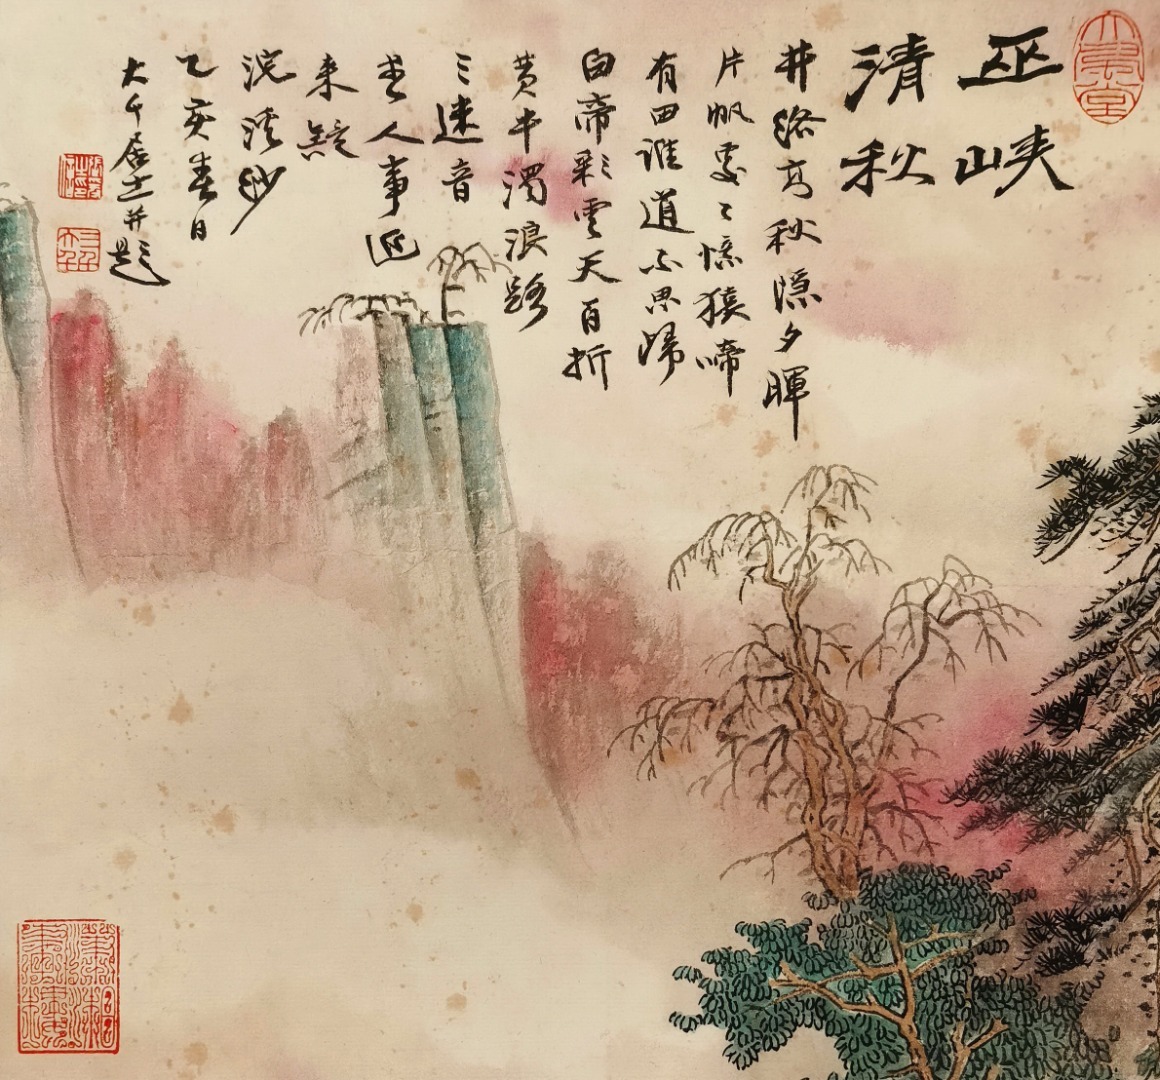 巫峽
清秋
井絡高秋隱夕暉
片帆處〻憶猿啼
有田誰道不思歸
白帝彩雲天百折
黄牛濁浪路
三迷音
書人事近
来疑
浣溪紗
乙亥春日
大千居士并題
大風堂